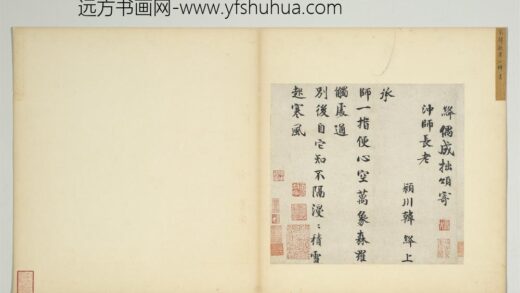 远方书画网-www.yfshuhua.com
絳偶成拙頌寄
沖師長老
潁川韓 絳上
承
師一指便心空萬象森羅
觸處通
別後自它知不隔漫〻積雪
起寒風